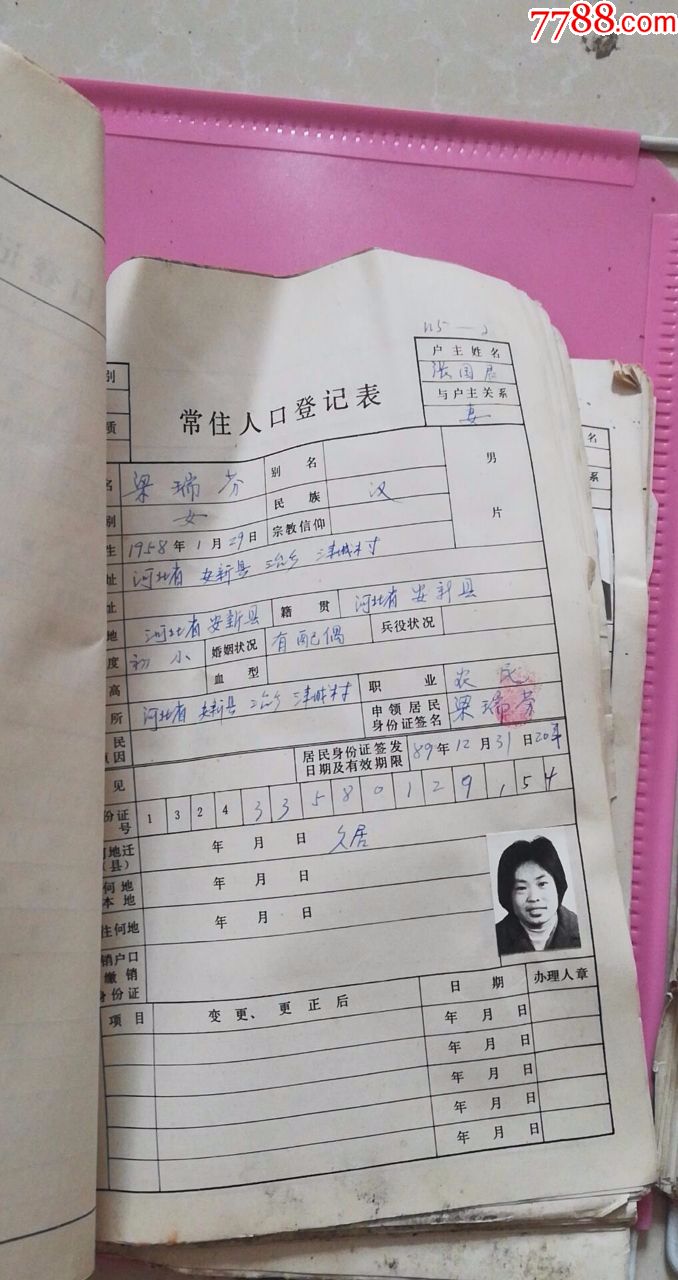 7788.com
户主姓名
张国辰
与户主关系
妻
别
质
常住人口登记表
名 梁瑞芬 别名
别 女 民族 汉
生 1958年1月29日 宗教信仰
男
片
址 河北省安新县
址
地 河北省安新县 籍贯 河北省安新县
度 初小 婚姻状况 有配偶 兵役状况
高 血型
所 河北省安新县 职业 农民
申领居民身份证签名 梁瑞芬
民
原因
居民身份证签发日期及有效期限 89年12月31日20年
见
份证号 1 3 2 4 3 3 5 8 0 1 2 9 , 5 4
何地迁
(县) 年 月 日 久居
何地
本地 年 月 日
往何地 年 月 日
销户口
缴销
身份证
项目 变更、更正后 日期 办理人章
年 月 日
年 月 日
年 月 日
年 月 日
年 月 日
名
系